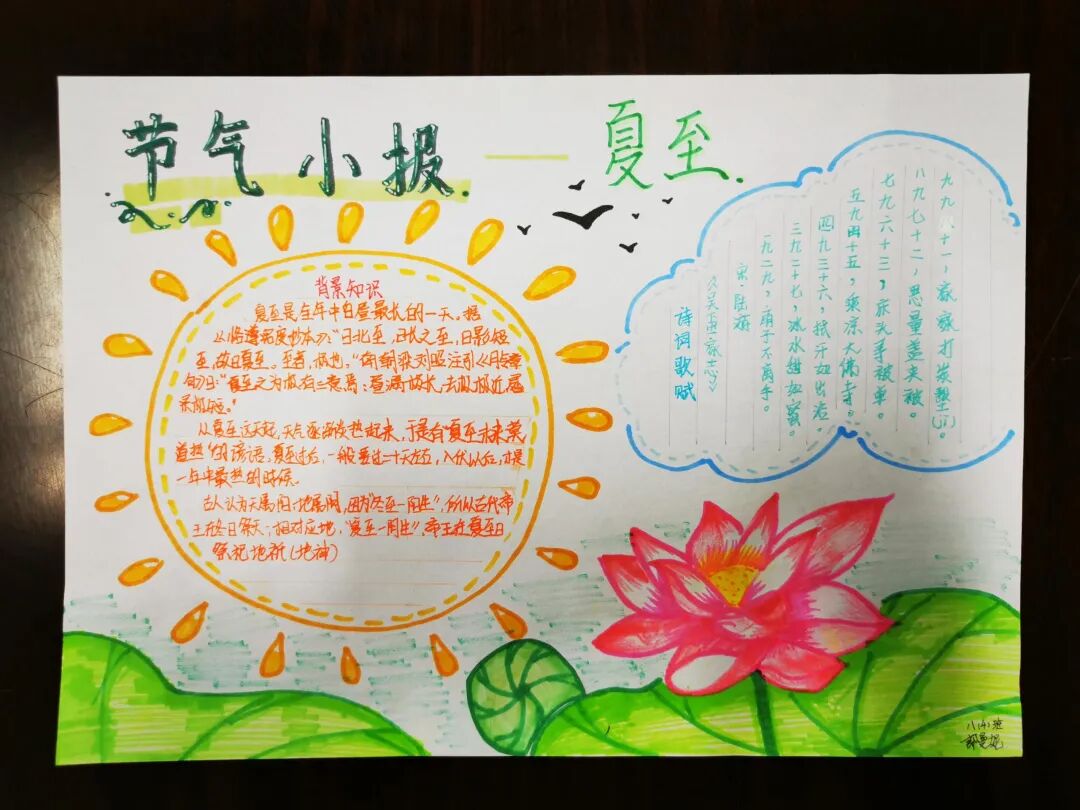 节气小报——夏至.
背景知识
夏至是全年中白昼最长的一天。据
《恪遵宪度抄本》:"日北至,日长之至,日影短
至,故曰夏至。至者,极也。"南朝梁刘昭注引《月令章
句》曰:"夏至之为极有三意焉:昼漏极长,去极极近,晷
景极短。"
从夏至这天起,天气逐渐炎热起来,于是有"夏至未来莫
道热"的谚语。夏至过后,一般要过二十天左右,入伏以后,才是
一年中最热的时候。
古人认为天属阳,地属阴,因为"冬至一阳生",所以古代帝
王在冬至日祭天;相对应地,"夏至一阴生",帝王在夏至日
祭祀地祇(地神)
诗词歌赋
《吴下田家志》
宋·陆泳
一九二九,扇子不离手。
三九二十七,冰水甜如蜜。
四九三十六,拭汗如出浴。
五九四十五,乘凉入佛寺。
七九六十三,床头寻被单。
八九七十二,思量盖夹被。
九九八十一,家家打炭墼(jī)。
八(4)班